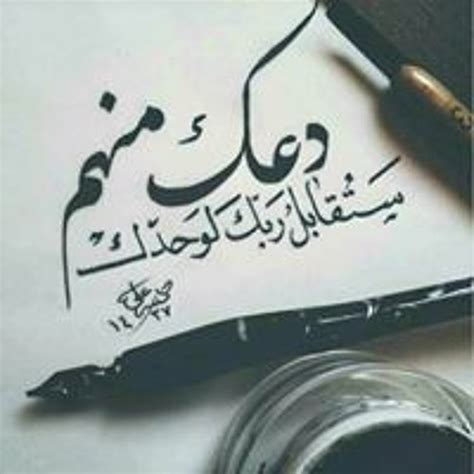 دعك منهم
سَتُقابلُ ربّكَ لوَحدّك
١٤٣٧